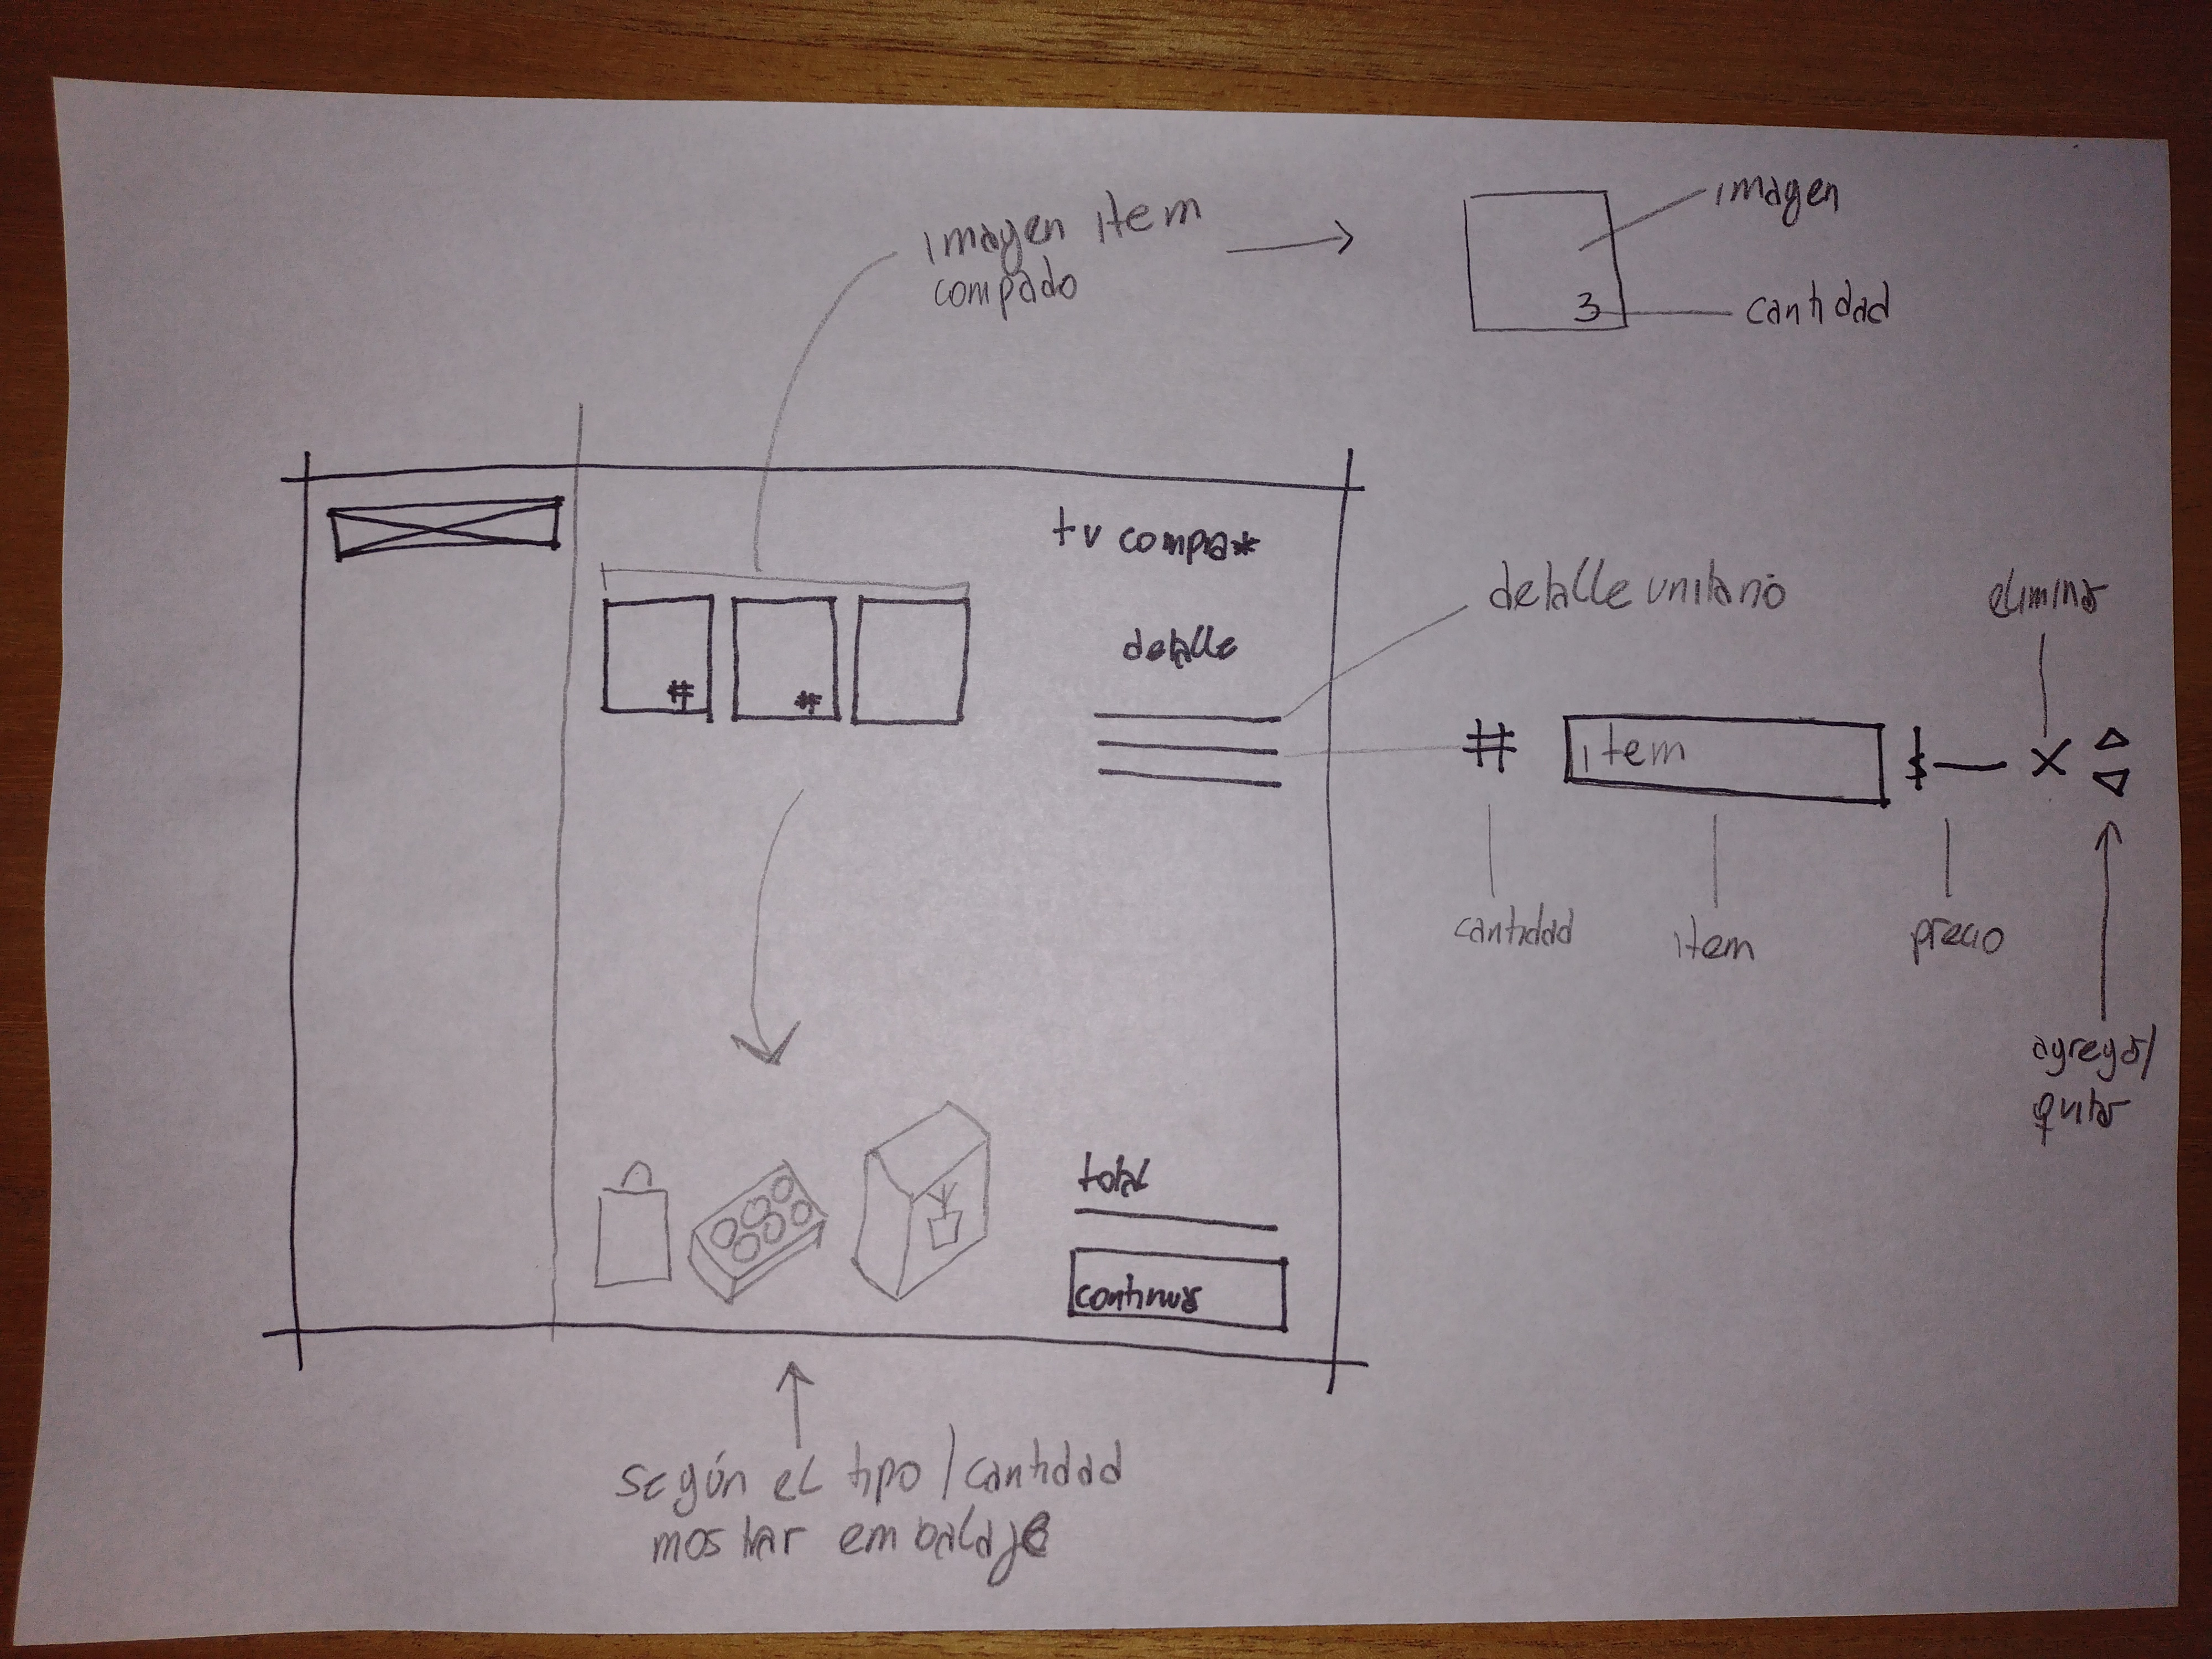 imagen item
compado
imagen
3
cantidad
tu compra*
#
#
detalle
detalle unitario
eliminar
#
item
$
X
cantidad
item
precio
agregar/
quitar
total
continuar
según el tipo/cantidad
mostrar embalaje